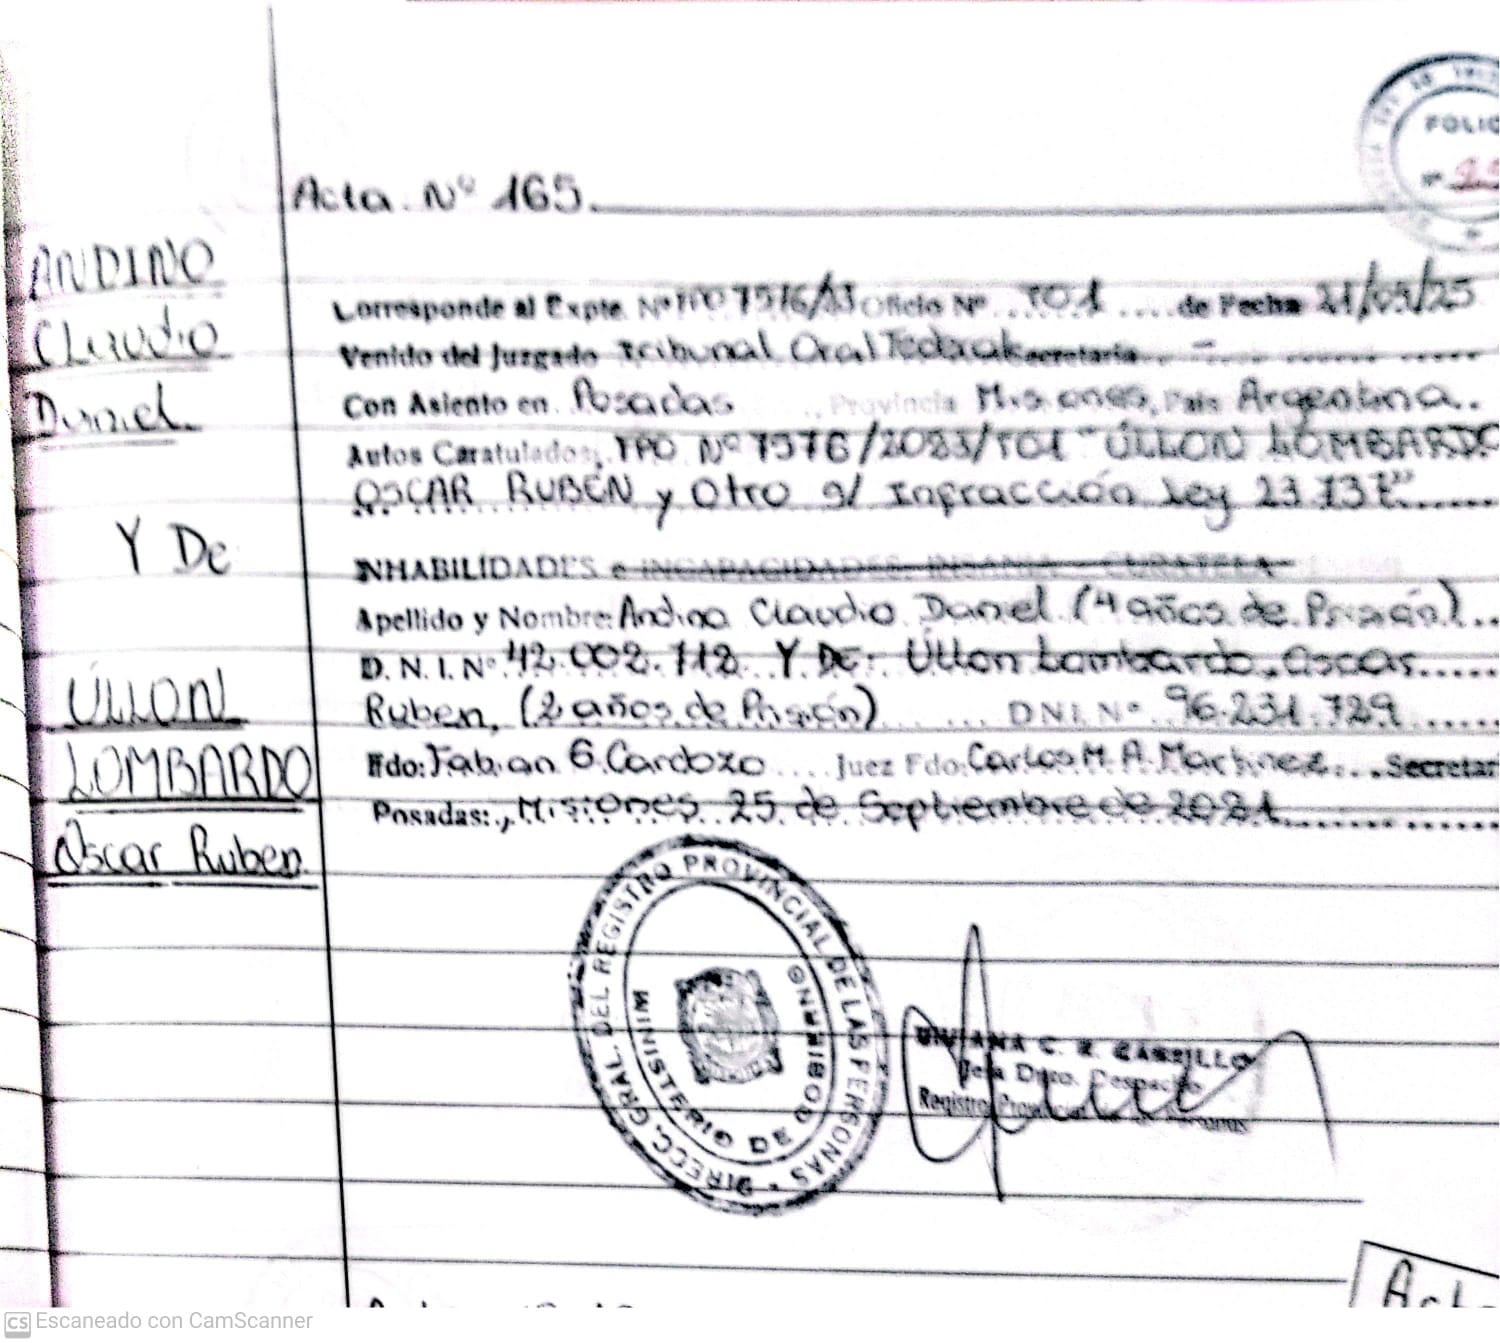 FOLIO
Nº
Acta Nº 165.
ANDINO
Claudio
Daniel
Y De
ÚLLON
LOMBARDO
Oscar Ruben
Corresponde al Expte. Nº 7576/23 Oficio Nº TO1 de Fecha 21/05/25
Venido del Juzgado Tribunal Oral Federal Secretaría -
Con Asiento en Posadas, Provincia Misiones, País Argentina.
Autos Caratulados: Nº 7576/2023/TO1 "ÚLLON LOMBARDO
OSCAR RUBEN y Otro s/ Infracción Ley 23.737"
INHABILIDADES e INCAPACIDADES: INSANIA - CURATELA
Apellido y Nombre: Andino Claudio Daniel (4 años de Prisión)
D. N. I. Nº 42.002.112. Y DE: Úllon Lombardo, Oscar
Ruben, (2 años de Prisión) D.N.I. Nº 96.231.729
Fdo: Fabian G. Cardozo Juez Fdo: Carlos M. A. Martinez Secretar
Posadas:, Misiones 25 de Septiembre de
DIRECC. GRAL. DEL REGISTRO PROVINCIAL DE LAS PERSONAS
MINISTERIO DE GOBIERNO
VIVIANA C. R. CARRILLO
Jefa Dpto. Despacho
Registro Provincial de las Personas
Escaneado con CamScanner